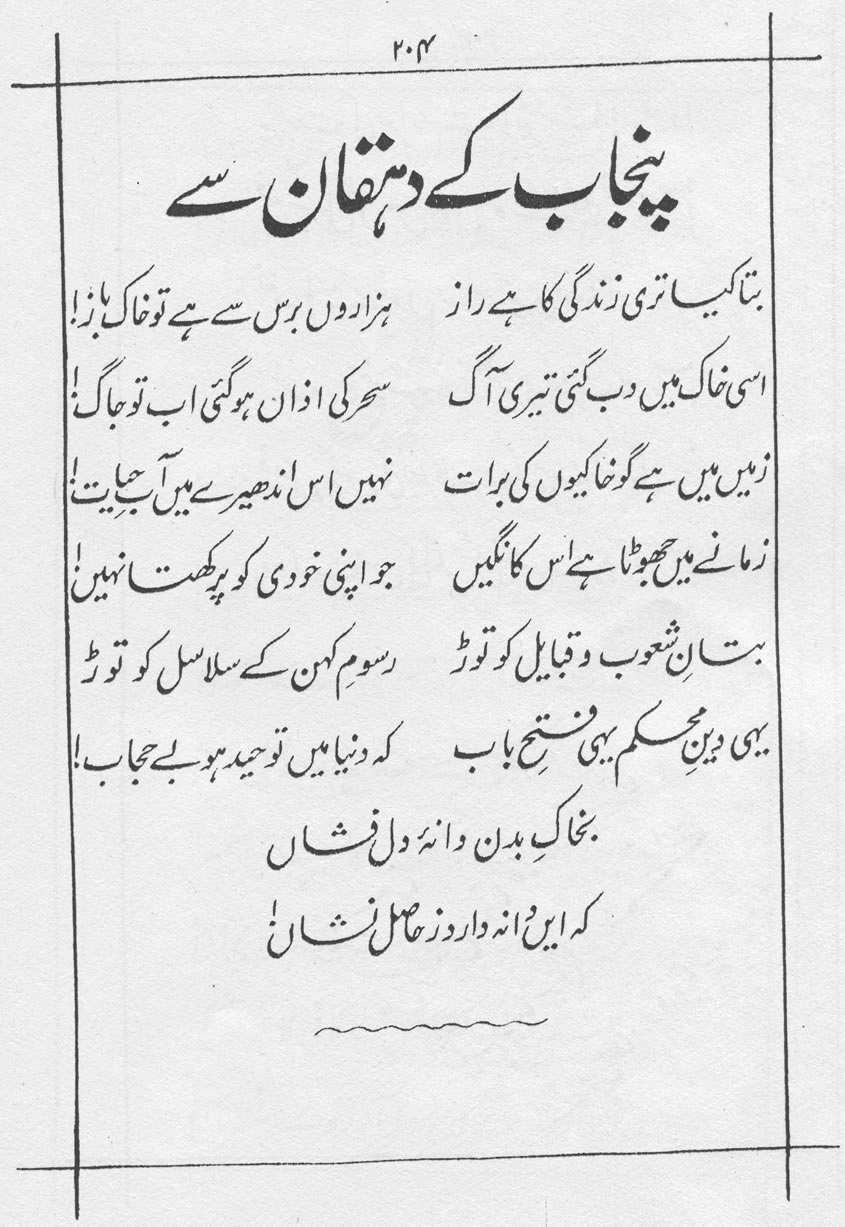 ۲۰۴
پنجاب کے دہقان سے
بتا کیا تری زندگی کا ہے راز ہزاروں برس سے ہے تو خاک باز!
اسی خاک میں دب گئی تیری آگ سحر کی اذان ہو گئی اب تو جاگ!
زمیں میں ہے گو خاکیوں کی برات نہیں اس اندھیرے میں آبِ حیات!
زمانے میں جھوٹا ہے اس کا نگیں جو اپنی خودی کو پرکھتا نہیں!
بتانِ شعوب و قبایل کو توڑ رسومِ کہن کے سلاسل کو توڑ
یہی دینِ محکم یہی فتحِ باب کہ دنیا میں توحید ہو بے حجاب!
بخاکِ بدن دانۂ دل فشاں
کہ ایں دانہ دارد ز حاصل نشاں!